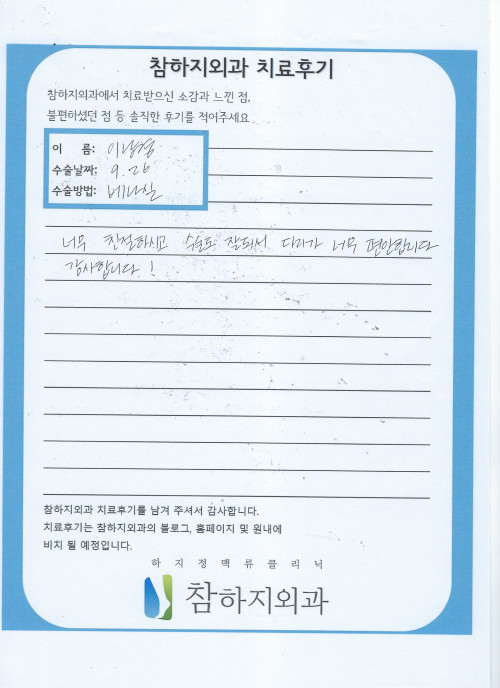 참하지외과 치료후기
참하지외과에서 치료받으신 소감과 느낀 점,
불편하셨던 점 등 솔직한 후기를 적어주세요
이 름: 이남경
수술날짜: 9.26
수술방법: 베나실
너무 친절하시고 수술도 잘되서 다리가 너무 편안합니다
감사합니다!
참하지외과 치료후기를 남겨 주셔서 감사합니다.
치료후기는 참하지외과의 블로그, 홈페이지 및 원내에
비치 될 예정입니다.
하지정맥류클리닉
참하지외과